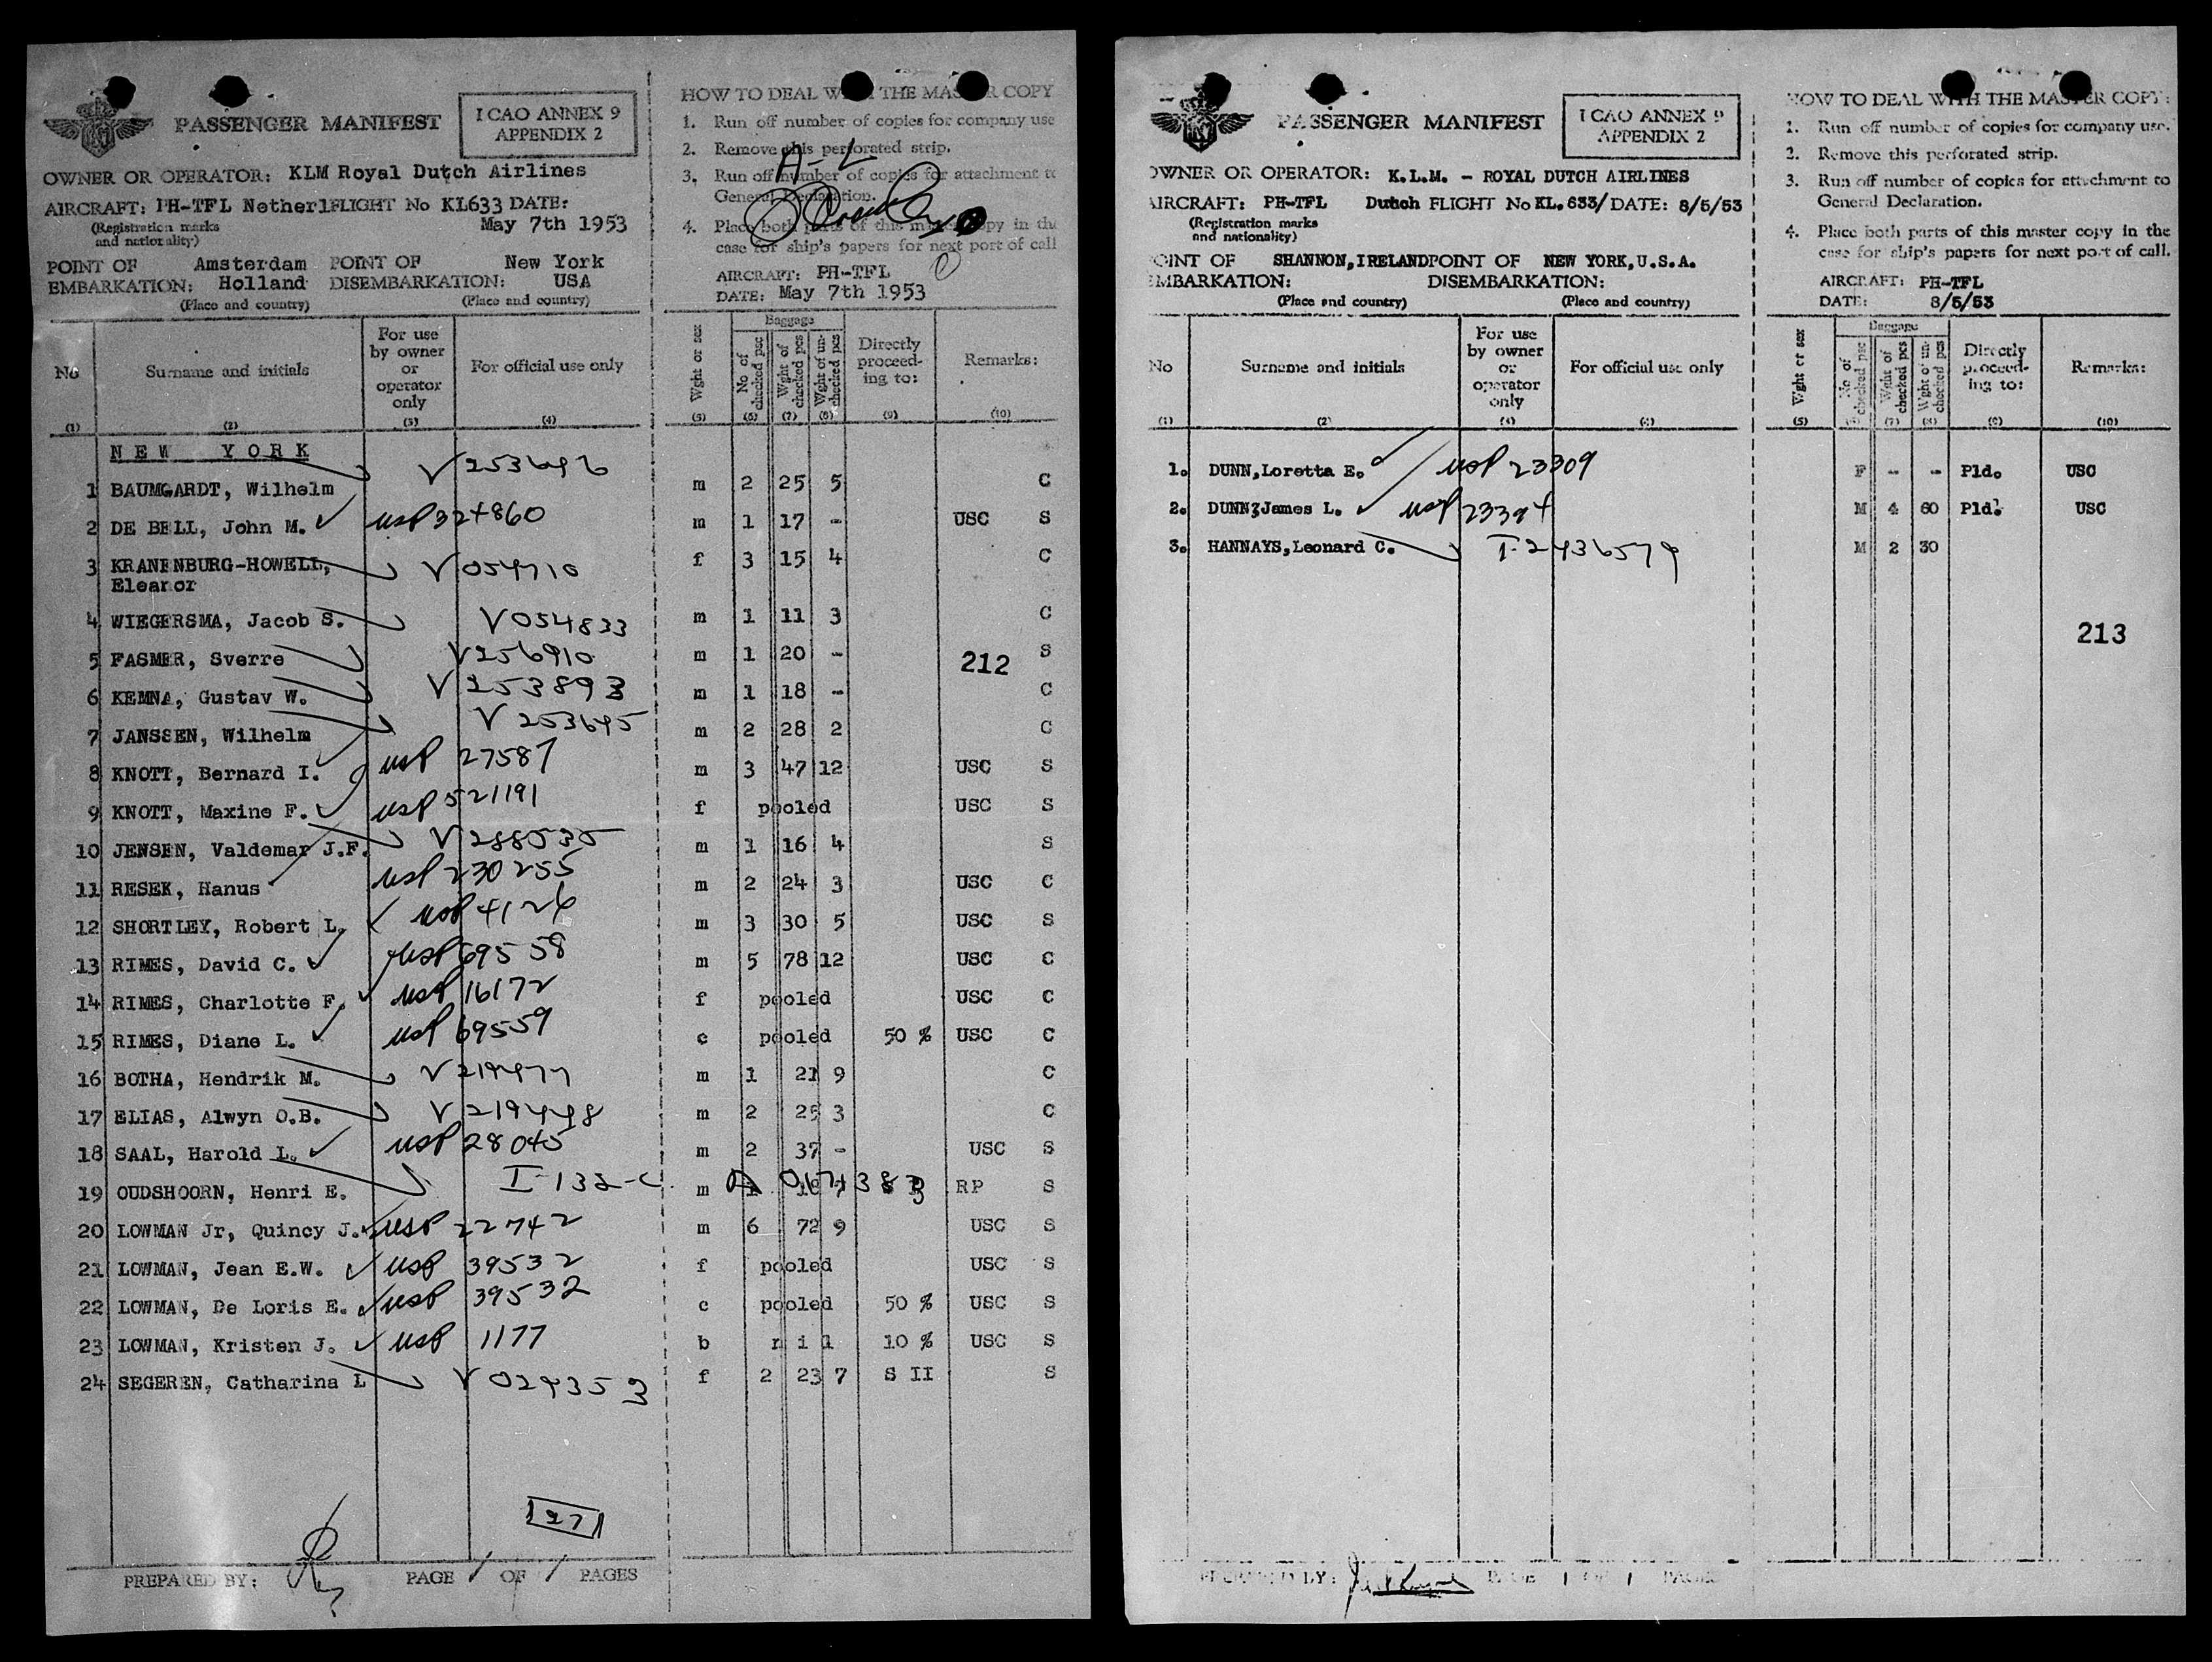 PASSENGER MANIFEST
I CAO ANNEX 9
APPENDIX 2
OWNER OR OPERATOR: KLM Royal Dutch Airlines
AIRCRAFT: PH-TFL Netherl FLIGHT No KL633 DATE:
(Registration marks and nationality) May 7th 1953
POINT OF Amsterdam POINT OF New York
EMBARKATION: Holland DISEMBARKATION: USA
(Place and country) (Place and country)
HOW TO DEAL WITH THE MASTER COPY
1. Run off number of copies for company use
2. Remove this perforated strip.
3. Run off number of copies for attachment to
General Declaration.
4. Place both parts of this master copy in the
case for ship's papers for next port of call
A-L
AIRCRAFT: PH-TFL
DATE: May 7th 1953
No Surname and initials For use by owner or operator only For official use only Wght or sex Baggage No of checked psc Wght of checked pcs Wght of un-checked pcs Directly proceed-ing to: Remarks:
(1) (2) (3) (4) (5) (6) (7) (8) (9) (10)
NEW YORK
1 BAUMGARDT, Wilhelm V 253696 m 2 25 5 C
2 DE BELL, John M. usp 324860 m 1 17 - USC S
3 KRANENBURG-HOWELL, V 054710 f 3 15 4 C
Eleanor
4 WIEGERSMA, Jacob S. V054833 m 1 11 3 C
5 FASMER, Sverre V256910 m 1 20 - S
212
6 KEMNA, Gustav W. V 253893 m 1 18 - C
7 JANSSEN, Wilhelm V 253695 m 2 28 2 C
8 KNOTT, Bernard I. usp 27587 m 3 47 12 USC S
9 KNOTT, Maxine F. usp 521191 f pooled USC S
10 JENSEN, Valdemar J.F. V 288535 m 1 16 4 S
11 RESEK, Hanus usp 230255 m 2 24 3 USC C
12 SHORTLEY, Robert L. usp 4126 m 3 30 5 USC S
13 RIMES, David C. usp 69558 m 5 78 12 USC C
14 RIMES, Charlotte F. usp 16172 f pooled USC C
15 RIMES, Diane L. usp 69559 c pooled 50 % USC C
16 BOTHA, Hendrik M. V 219497 m 1 21 9 C
17 ELIAS, Alwyn O.B. V 219498 m 2 25 3 C
18 SAAL, Harold L. usp 28045 m 2 37 - USC S
19 OUDSHOORN, Henri E. I-132-C m RP S
20 LOWMAN Jr, Quincy J. usp 22742 m 6 72 9 USC S
21 LOWMAN, Jean E.W. usp 39532 f pooled USC S
22 LOWMAN, De Loris E. usp 39532 c pooled 50 % USC S
23 LOWMAN, Kristen J. usp 1177 b nil 10 % USC S
24 SEGEREN, Catharina L V 029353 f 2 23 7 S II S
27
PREPARED BY: PAGE 1 OF 1 PAGES
PASSENGER MANIFEST
I CAO ANNEX 9
APPENDIX 2
OWNER OR OPERATOR: K.L.M. - ROYAL DUTCH AIRLINES
AIRCRAFT: PH-TFL Dutch FLIGHT No KL.633/ DATE: 8/5/53
(Registration marks and nationality)
POINT OF SHANNON, IRELAND POINT OF NEW YORK, U.S.A.
EMBARKATION: DISEMBARKATION:
(Place and country) (Place and country)
HOW TO DEAL WITH THE MASTER COPY:
1. Run off number of copies for company use.
2. Remove this perforated strip.
3. Run off number of copies for attachment to
General Declaration.
4. Place both parts of this master copy in the
case for ship's papers for next port of call.
AIRCRAFT: PH-TFL
DATE: 8/5/53
No Surname and initials For use by owner or operator only For official use only Wght or sex Baggage No of checked psc Wght of checked pcs Wght of un-checked pcs Directly proceed-ing to: Remarks:
(1) (2) (3) (4) (5) (6) (7) (8) (9) (10)
1. DUNN, Loretta E. usp 23309 F - - Pld. USC
2. DUNN, James L. usp 23394 M 4 60 Pld. USC
3. HANNAYS, Leonard C. I-2436579 M 2 30
213
PREPARED BY: PAGE 1 OF 1 PAGES